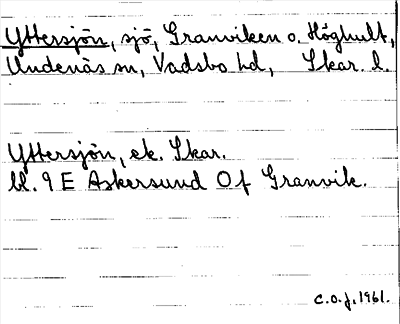 Yttersjön, sjö, Granviken o. Höghult,
Undenäs sn, Vadsbo hd, Skar. l.
Yttersjön, ek. Skar.
bl. 9 E Askersund 0f Granvik.
C.O.J. 1961.